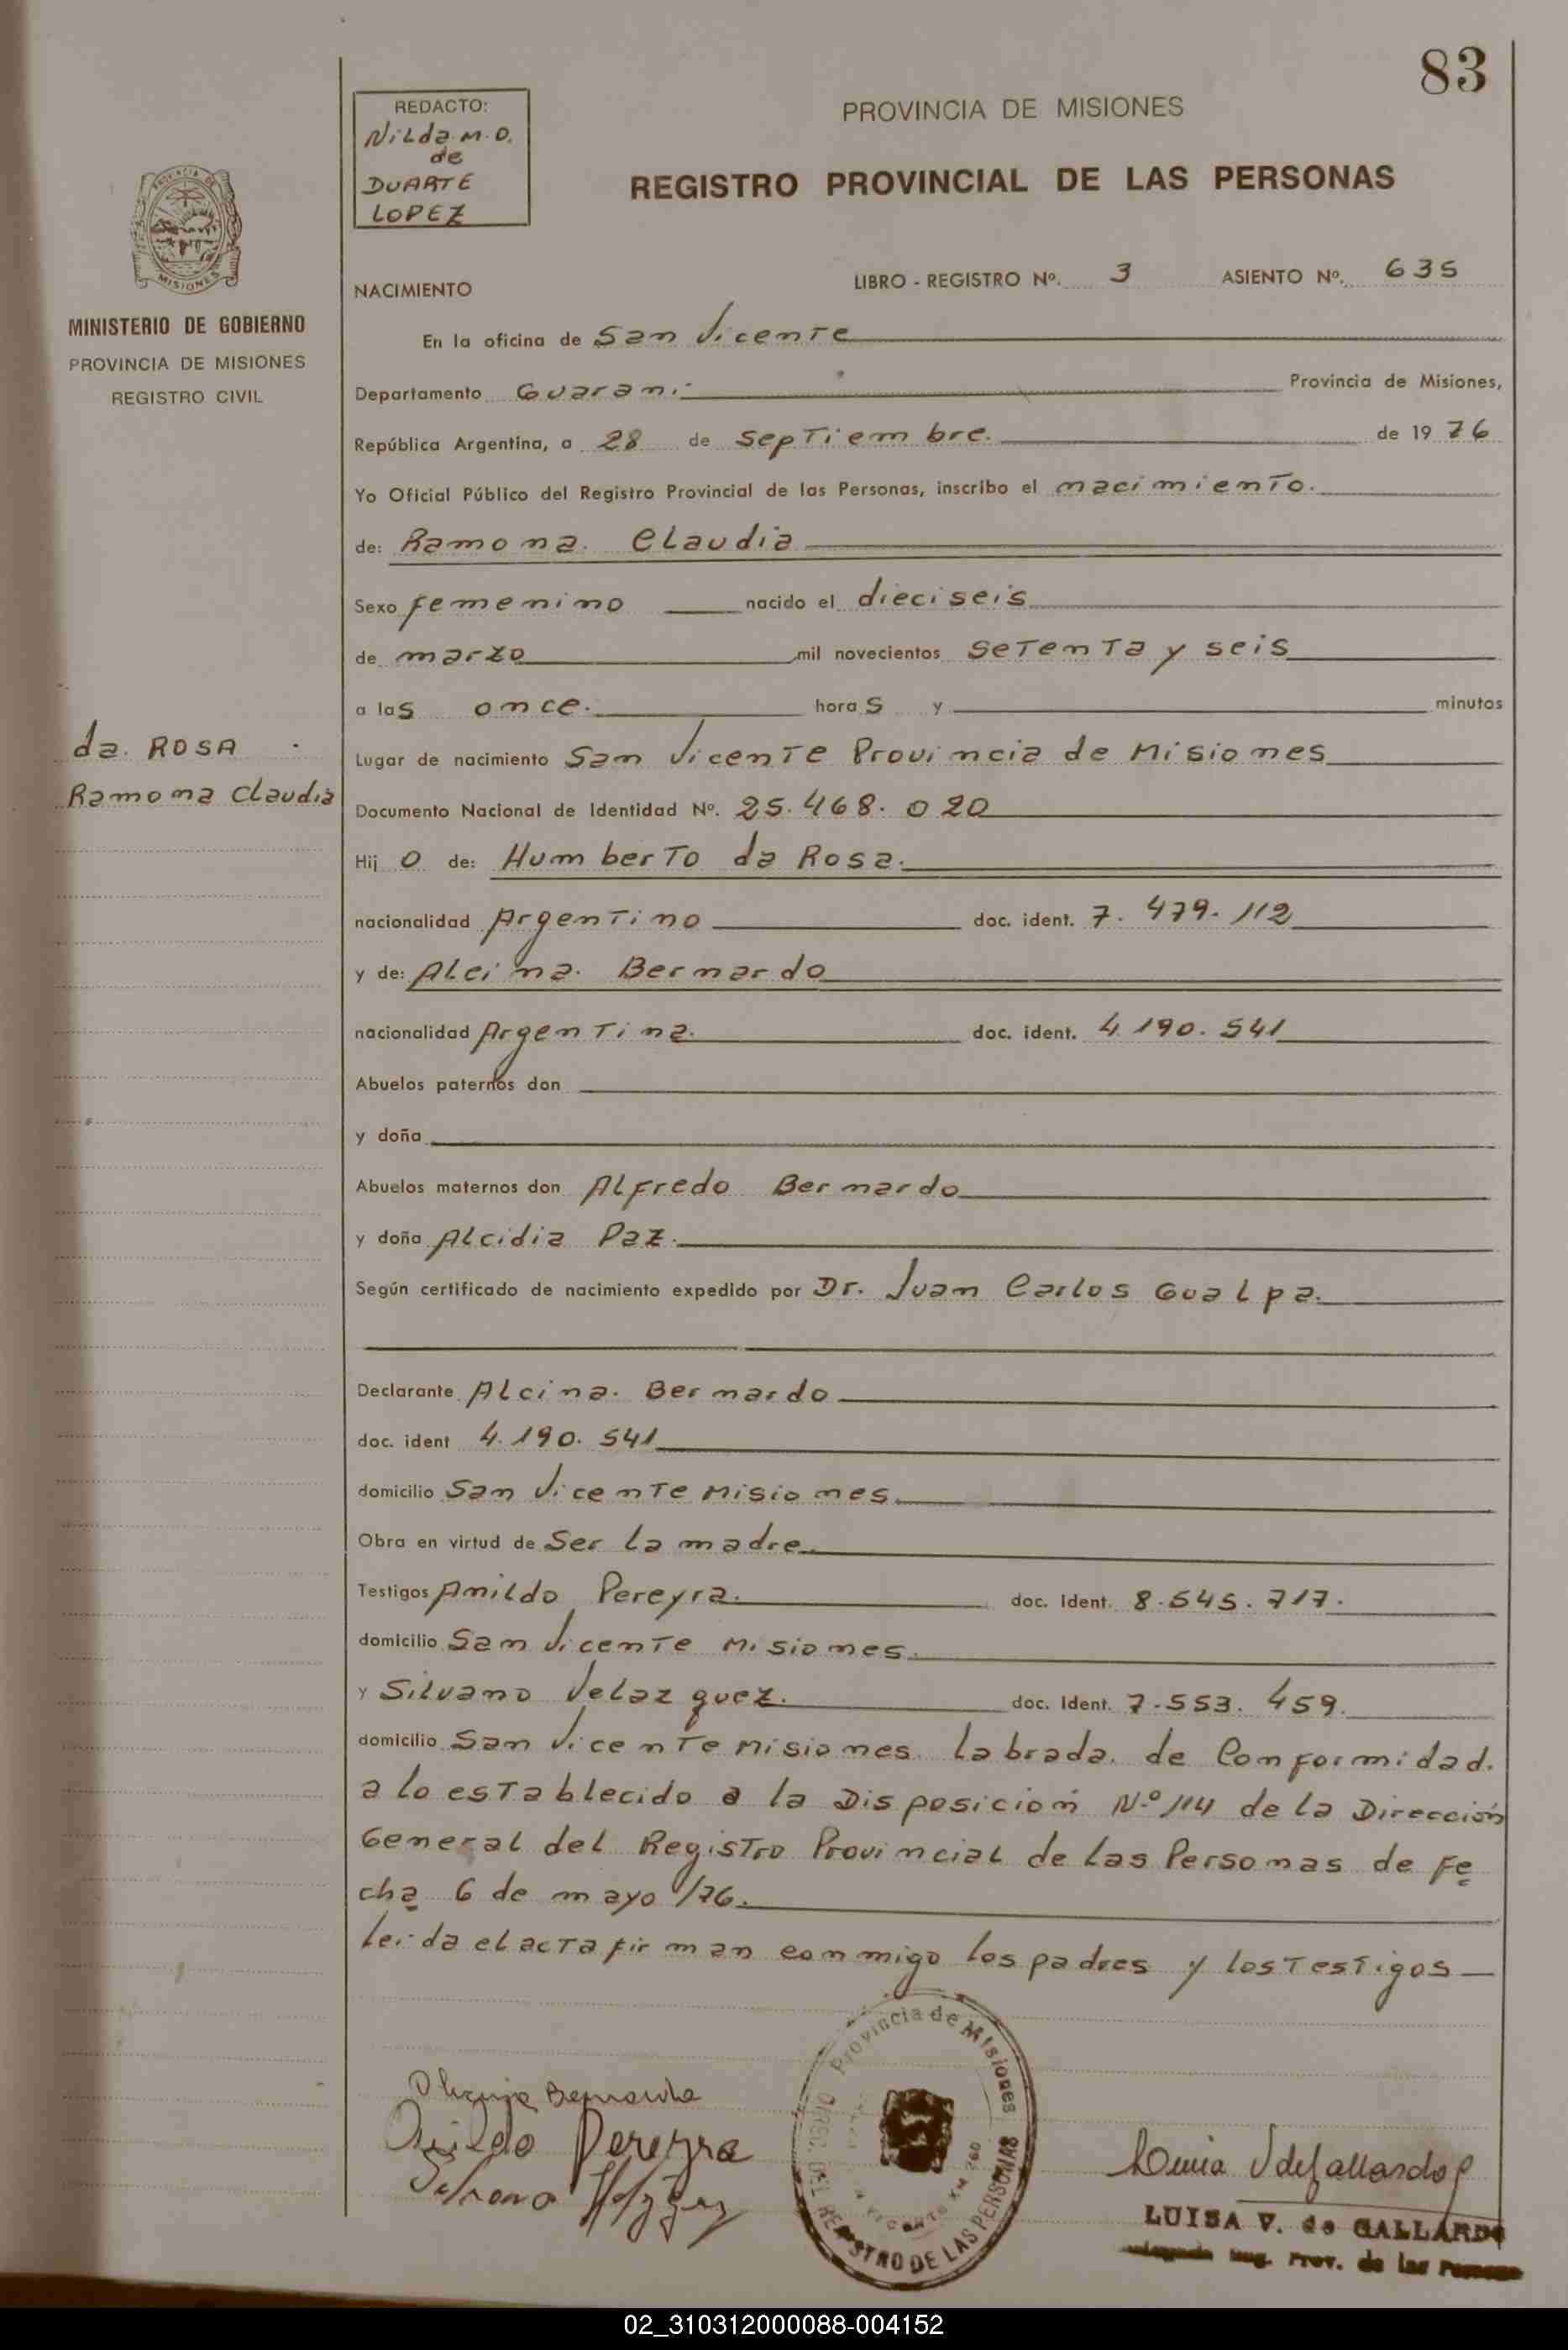 83
REDACTO:
Nilda.M.O.
de
DUARTE
LOPEZ
PROVINCIA DE MISIONES
REGISTRO PROVINCIAL DE LAS PERSONAS
MISIONES
MINISTERIO DE GOBIERNO
PROVINCIA DE MISIONES
REGISTRO CIVIL
NACIMIENTO
LIBRO - REGISTRO Nº. 3 ASIENTO Nº. 635
En la oficina de San Vicente
Departamento Guarani Provincia de Misiones,
República Argentina, a 28 de septiembre. de 1976
Yo Oficial Público del Registro Provincial de las Personas, inscribo el nacimiento.
de: Ramona. Claudia
Sexo femenino nacido el dieciseis
de marzo mil novecientos setenta y seis
a las once. horas y minutos
da. ROSA
Ramona Claudia
Lugar de nacimiento San Vicente Provincia de Misiones
Documento Nacional de Identidad Nº. 25.468.020
Hijo de: Humberto da Rosa.
nacionalidad Argentino doc. ident. 7.479.112
y de: Alcina. Bernardo
nacionalidad Argentina. doc. ident. 4.190.541
Abuelos paternos don
y doña
Abuelos maternos don Alfredo Bernardo
y doña Alcidia Paz.
Según certificado de nacimiento expedido por Dr. Juan Carlos Gualpa.
Declarante Alcina. Bernardo
doc. ident 4.190.541
domicilio San Vicente Misiones.
Obra en virtud de Ser la madre.
Testigos Anildo Pereyra. doc. Ident. 8.545.717.
domicilio San Vicente Misiones.
y Silvano Velazquez. doc. Ident. 7.553.459.
domicilio San Vicente Misiones. labrada. de Conformidad.
a lo establecido a la Disposición Nº 114 de la Dirección
General del Registro Provincial de las Personas de Fe
cha 6 de mayo /76.
leida el acta firman conmigo los padres y los testigos
Provincia de Misiones
DIREC. DEL REGISTRO DE LAS PERSONAS
Pereyra
LUISA V. de GALLARDO
Reg. Prov. de las Personas
02_310312000088-004152